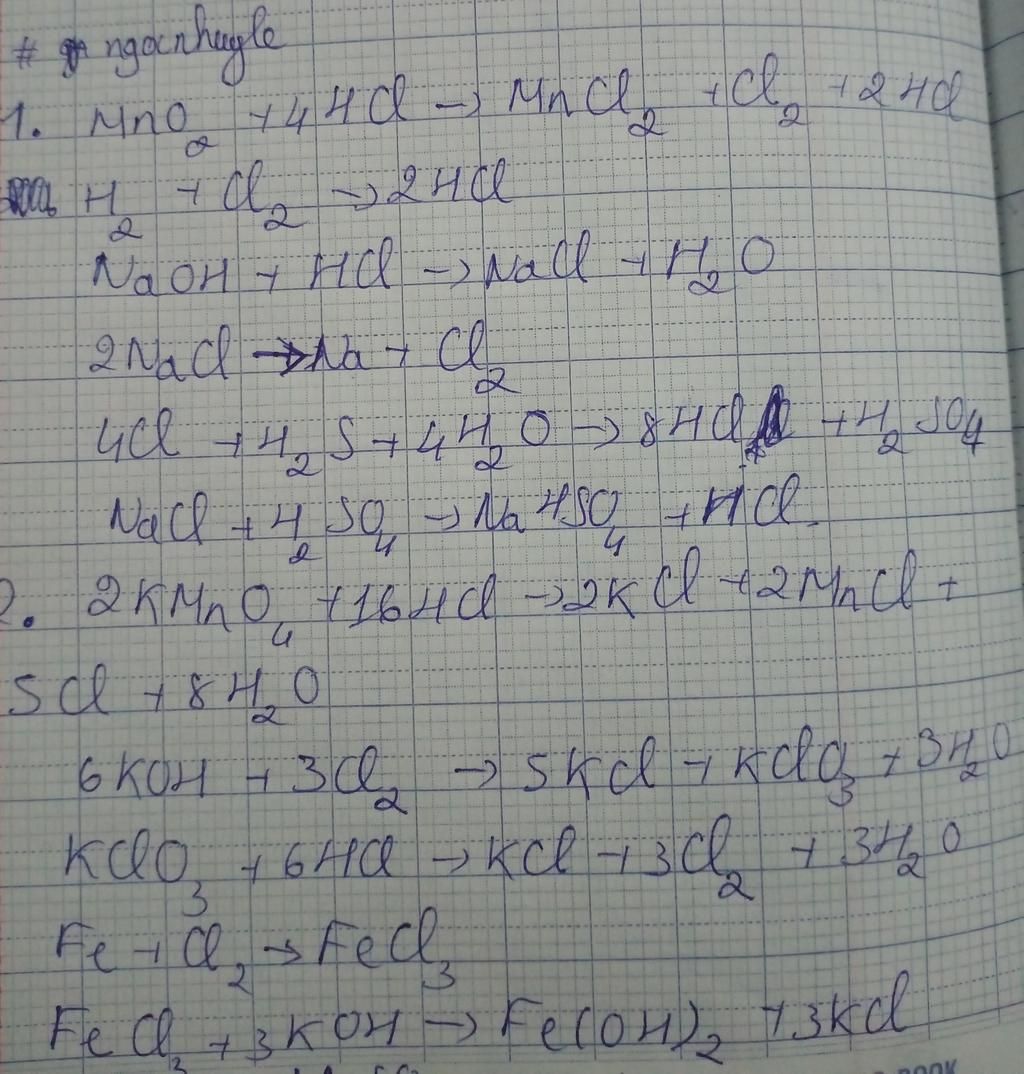 # ngocnhugle
1. MnO2 + 4HCl → MnCl2 + Cl2 + 2HCl
H2 + Cl2 → 2HCl
NaOH + HCl → NaCl + H2O
2NaCl → Na + Cl2
4Cl + H2S + 4H2O → 8HCl + H2SO4
NaCl + H2SO4 → NaHSO4 + HCl
2. 2KMnO4 + 16HCl → 2KCl + 2MnCl +
5Cl + 8H2O
6KOH + 3Cl2 → 5KCl + KClO3 + 3H2O
KClO3 + 6HCl → KCl + 3Cl2 + 3H2O
Fe + Cl2 → FeCl3
FeCl3 + 3KOH → Fe(OH)2 + 3KCl